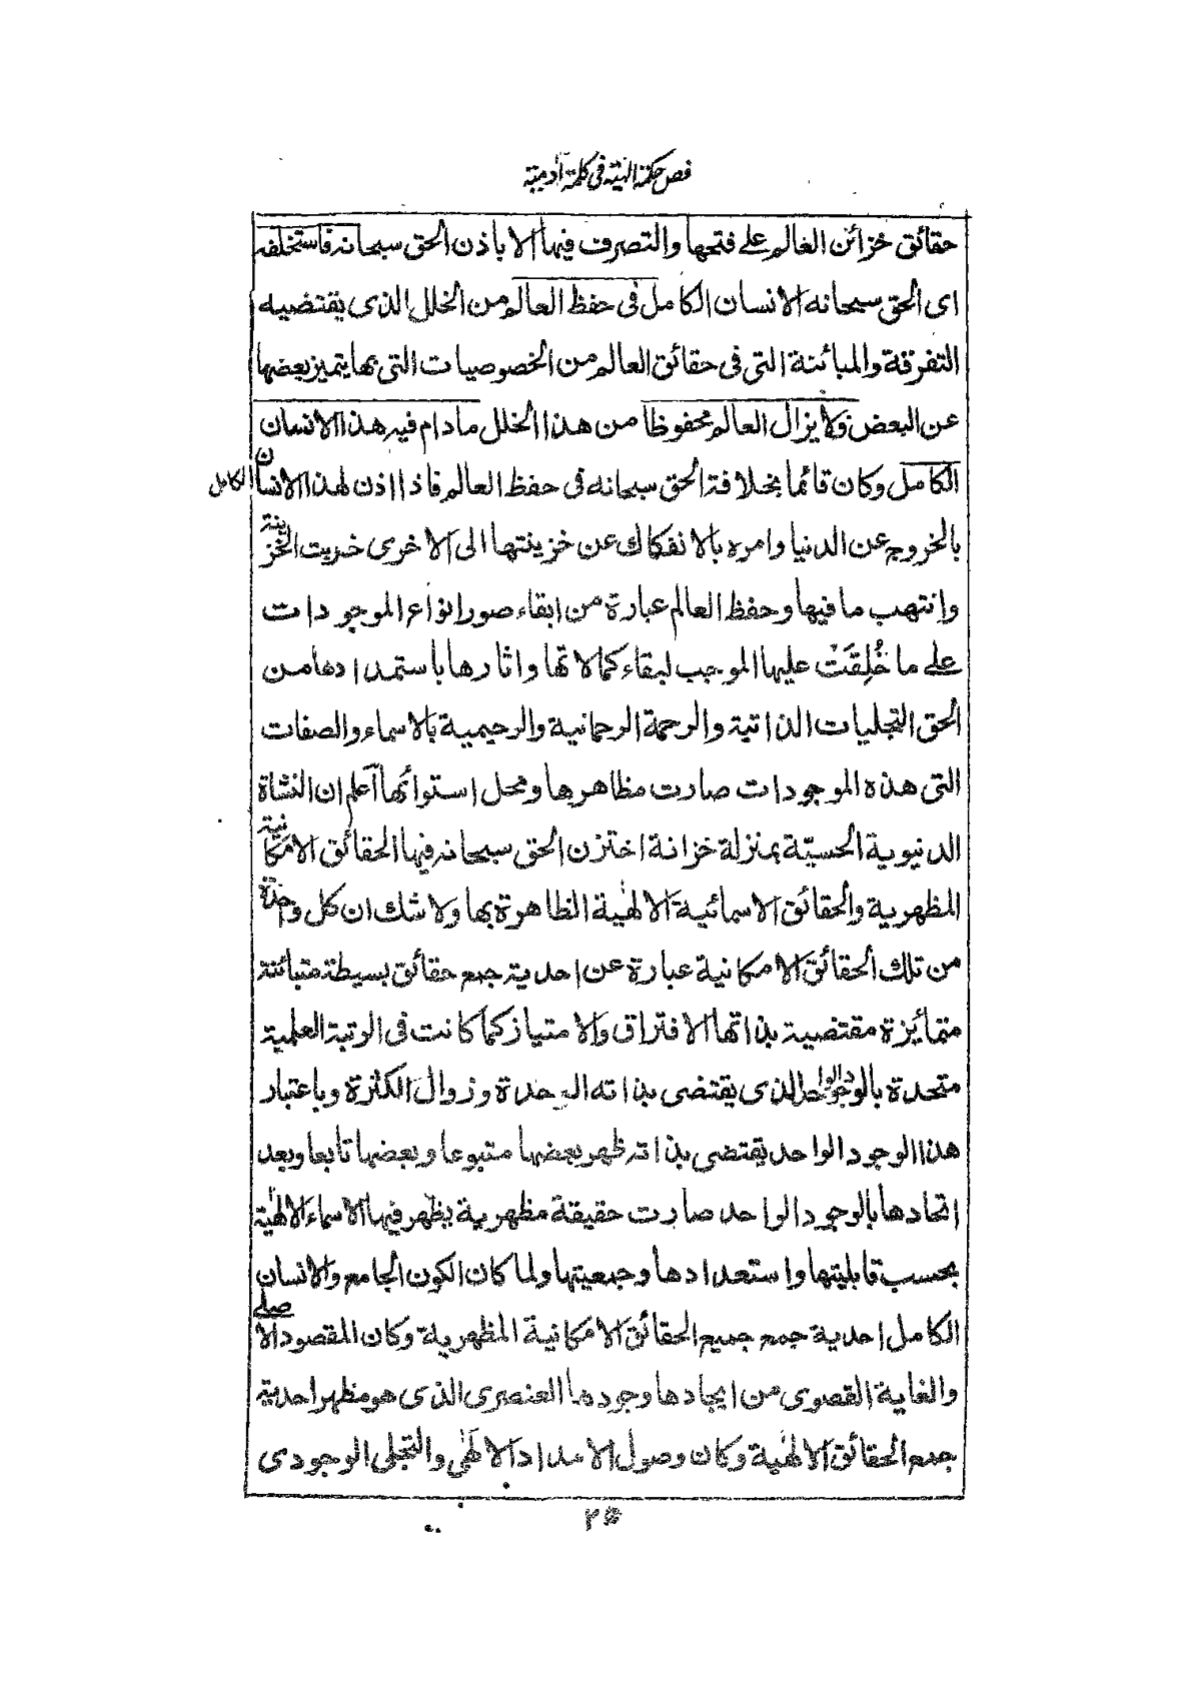 فص حكمة الهية في كلمة آدمية
حقائق خزائن العالم على فتحها والتصرف فيها الا باذن الحق سبحانه فاستخلفه
اى الحق سبحانه الانسان الكامل فى حفظ العالم من الخلل الذى يقتضيه
التفرقة والمبائنة التى فى حقائق العالم من الخصوصيات التى بها يتميز بعضها
عن البعض ولا يزال العالم محفوظا من هذا الخلل مادام فيه هذا الانسان
الكامل وكان قائما بخلافة الحق سبحانه فى حفظ العالم فاذا اذن لهذا الانسان الكامل
بالخروج عن الدنيا وامره بالانفكاك عن خزينتها الى الاخرى خربت الخزينة
وانتهب ما فيها وحفظ العالم عبارة من ابقاء صور انواع الموجودات
على ما خُلِقَتْ عليها الموجب لبقاء كمالاتها واثارها باستمدادها من
الحق التجليات الذاتية والرحمة الرحمانية والرحيمية بالاسماء والصفات
التى هذه الموجودات صارت مظاهرها ومحل استوائها آعلم ان النشاة
الدنيوية الحسيّة بمنزلة خزانة اختزن الحق سبحانه فيها الحقائق الامكانية
المظهرية والحقائق الاسمائية الالهية الظاهرة بها ولا شك ان كل واحدة
من تلك الحقائق الامكانية عبارة عن احدية جمع حقائق بسيطة متبائنة
متمائزة مقتضية بذاتها الافتراق والامتياز كما كانت فى الرتبة العلمية
متحدة بالوجود الواحد الذى يقتضى بذاته الوحدة وزوال الكثرة وباعتبار
هذا الوجود الواحد يقتضى بذاته ظهر بعضها متبوعا وبعضها تابعا وبعد
اتحادها بالوجود الواحد صارت حقيقة مظهرية يظهر فيها الاسماء الالهية
بحسب قابليتها واستعدادها وجمعيتها ولما كان الكون الجامع والانسان
الكامل احدية جمع جميع الحقائق الامكانية المظهرية وكان المقصود الاصلى
والغاية القصوى من ايجادها وجودها العنصرى الذى هو مظهر احدية
جمع الحقائق الالهية وكان وصول الامداد الالهى والتجلى الوجودى